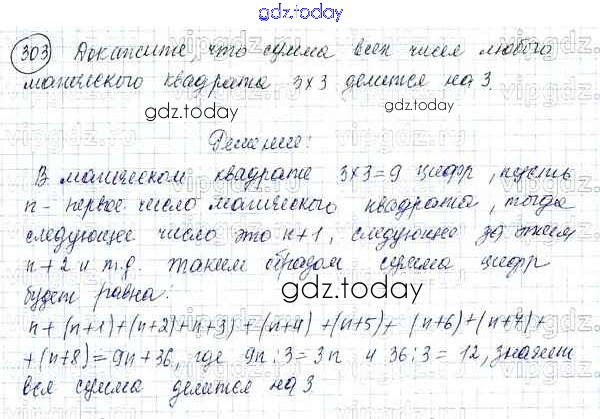 gdz.today
303) Докажите, что сумма всех чисел любого
магического квадрата 3×3 делится на 3.
gdz.today gdz.today
Решение:
В магическом квадрате 3×3=9 цифр, пусть
n - первое число магического квадрата, тогда
следующее число это n+1, следующее за этим
n+2 и т.д. таким образом сумма цифр
будет равна:
gdz.today
n+(n+1)+(n+2)+n+3)+(n+4)+(n+5)+(n+6)+(n+7)+
+(n+8)=9n+36, где 9n:3=3n и 36:3=12, значит
вся сумма делится на 3
gdz.today